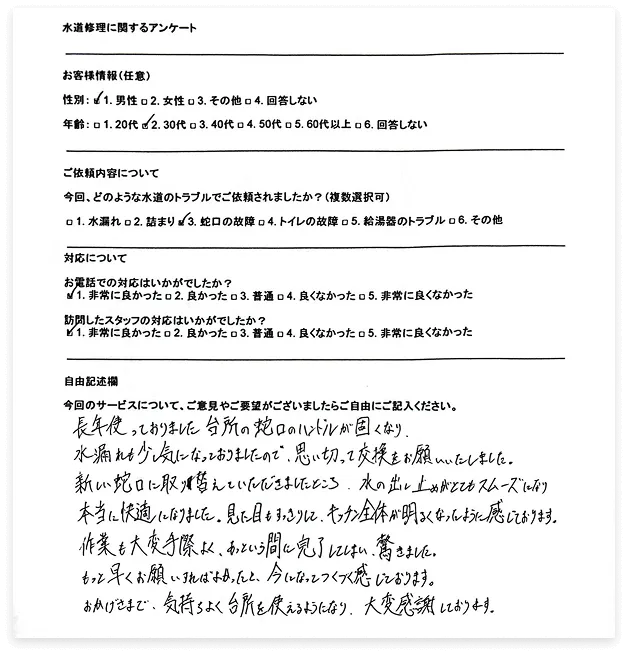 水道修理に関するアンケート
お客様情報(任意)
性別: ☑1. 男性 □2. 女性 □3. その他 □4. 回答しない
年齢: □1. 20代 ☑2. 30代 □3. 40代 □4. 50代 □5. 60代以上 □6. 回答しない
ご依頼内容について
今回、どのような水道のトラブルでご依頼されましたか?(複数選択可)
□1. 水漏れ □2. 詰まり ☑3. 蛇口の故障 □4. トイレの故障 □5. 給湯器のトラブル □6. その他
対応について
お電話での対応はいかがでしたか?
☑1. 非常に良かった □2. 良かった □3. 普通 □4. 良くなかった □5. 非常に良くなかった
訪問したスタッフの対応はいかがでしたか?
☑1. 非常に良かった □2. 良かった □3. 普通 □4. 良くなかった □5. 非常に良くなかった
自由記述欄
今回のサービスについて、ご意見やご要望がございましたらご自由にご記入ください。
長年使っておりました台所の蛇口のハンドルが固くなり、
水漏れも少し気になっておりましたので、思い切って交換をお願いいたしました。
新しい蛇口に取り替えていただきましたところ、水の出し止めがとてもスムーズになり
本当に快適になりました。見た目もすっきりして、キッチン全体が明るくなったように感じております。
作業も大変手際よく、あっという間に完了してしまい、驚きました。
もっと早くお願いすればよかったと、今になってつくづく感じております。
おかげさまで、気持ちよく台所を使えるようになり、大変感謝しております。